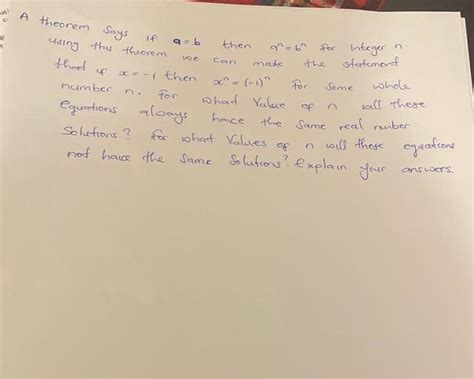 A theorem says if a=b then aⁿ=bⁿ for Integer n.
using this theorem we can make the statement
that if x=-1 then xⁿ=(-1)ⁿ for some whole
number n. for what value of n will these
equations always have the same real number
Solutions? for what values of n will these equations
not have the same solutions? Explain your answers.